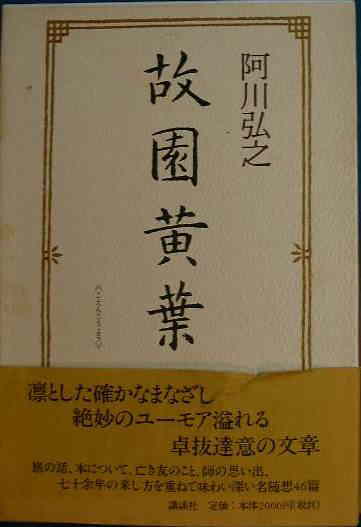 阿川弘之
故園黄葉
〈こえんこうよう〉
凛とした確かなまなざし
絶妙のユーモア溢れる
卓抜達意の文章
旅の話、本について、亡き友のこと、師の思い出、
七十余年の来し方を重ねて味わい深い名随想46篇
講談社 定価：本体2000円(税別)